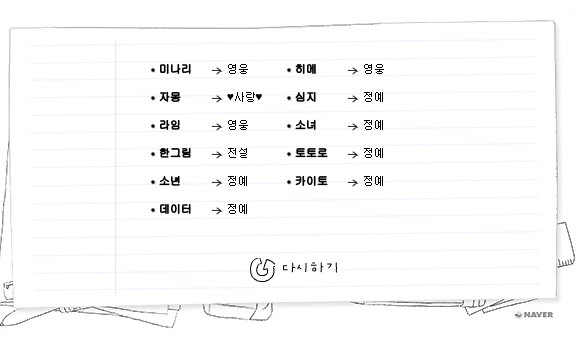 • 미나리 → 영웅 • 히메 → 영웅
• 자몽 → ♥사랑♥ • 심지 → 정예
• 라임 → 영웅 • 소녀 → 정예
• 한그림 → 전설 • 토토로 → 정예
• 소년 → 정예 • 카이토 → 정예
• 데이터 → 정예
다시하기
NAVER